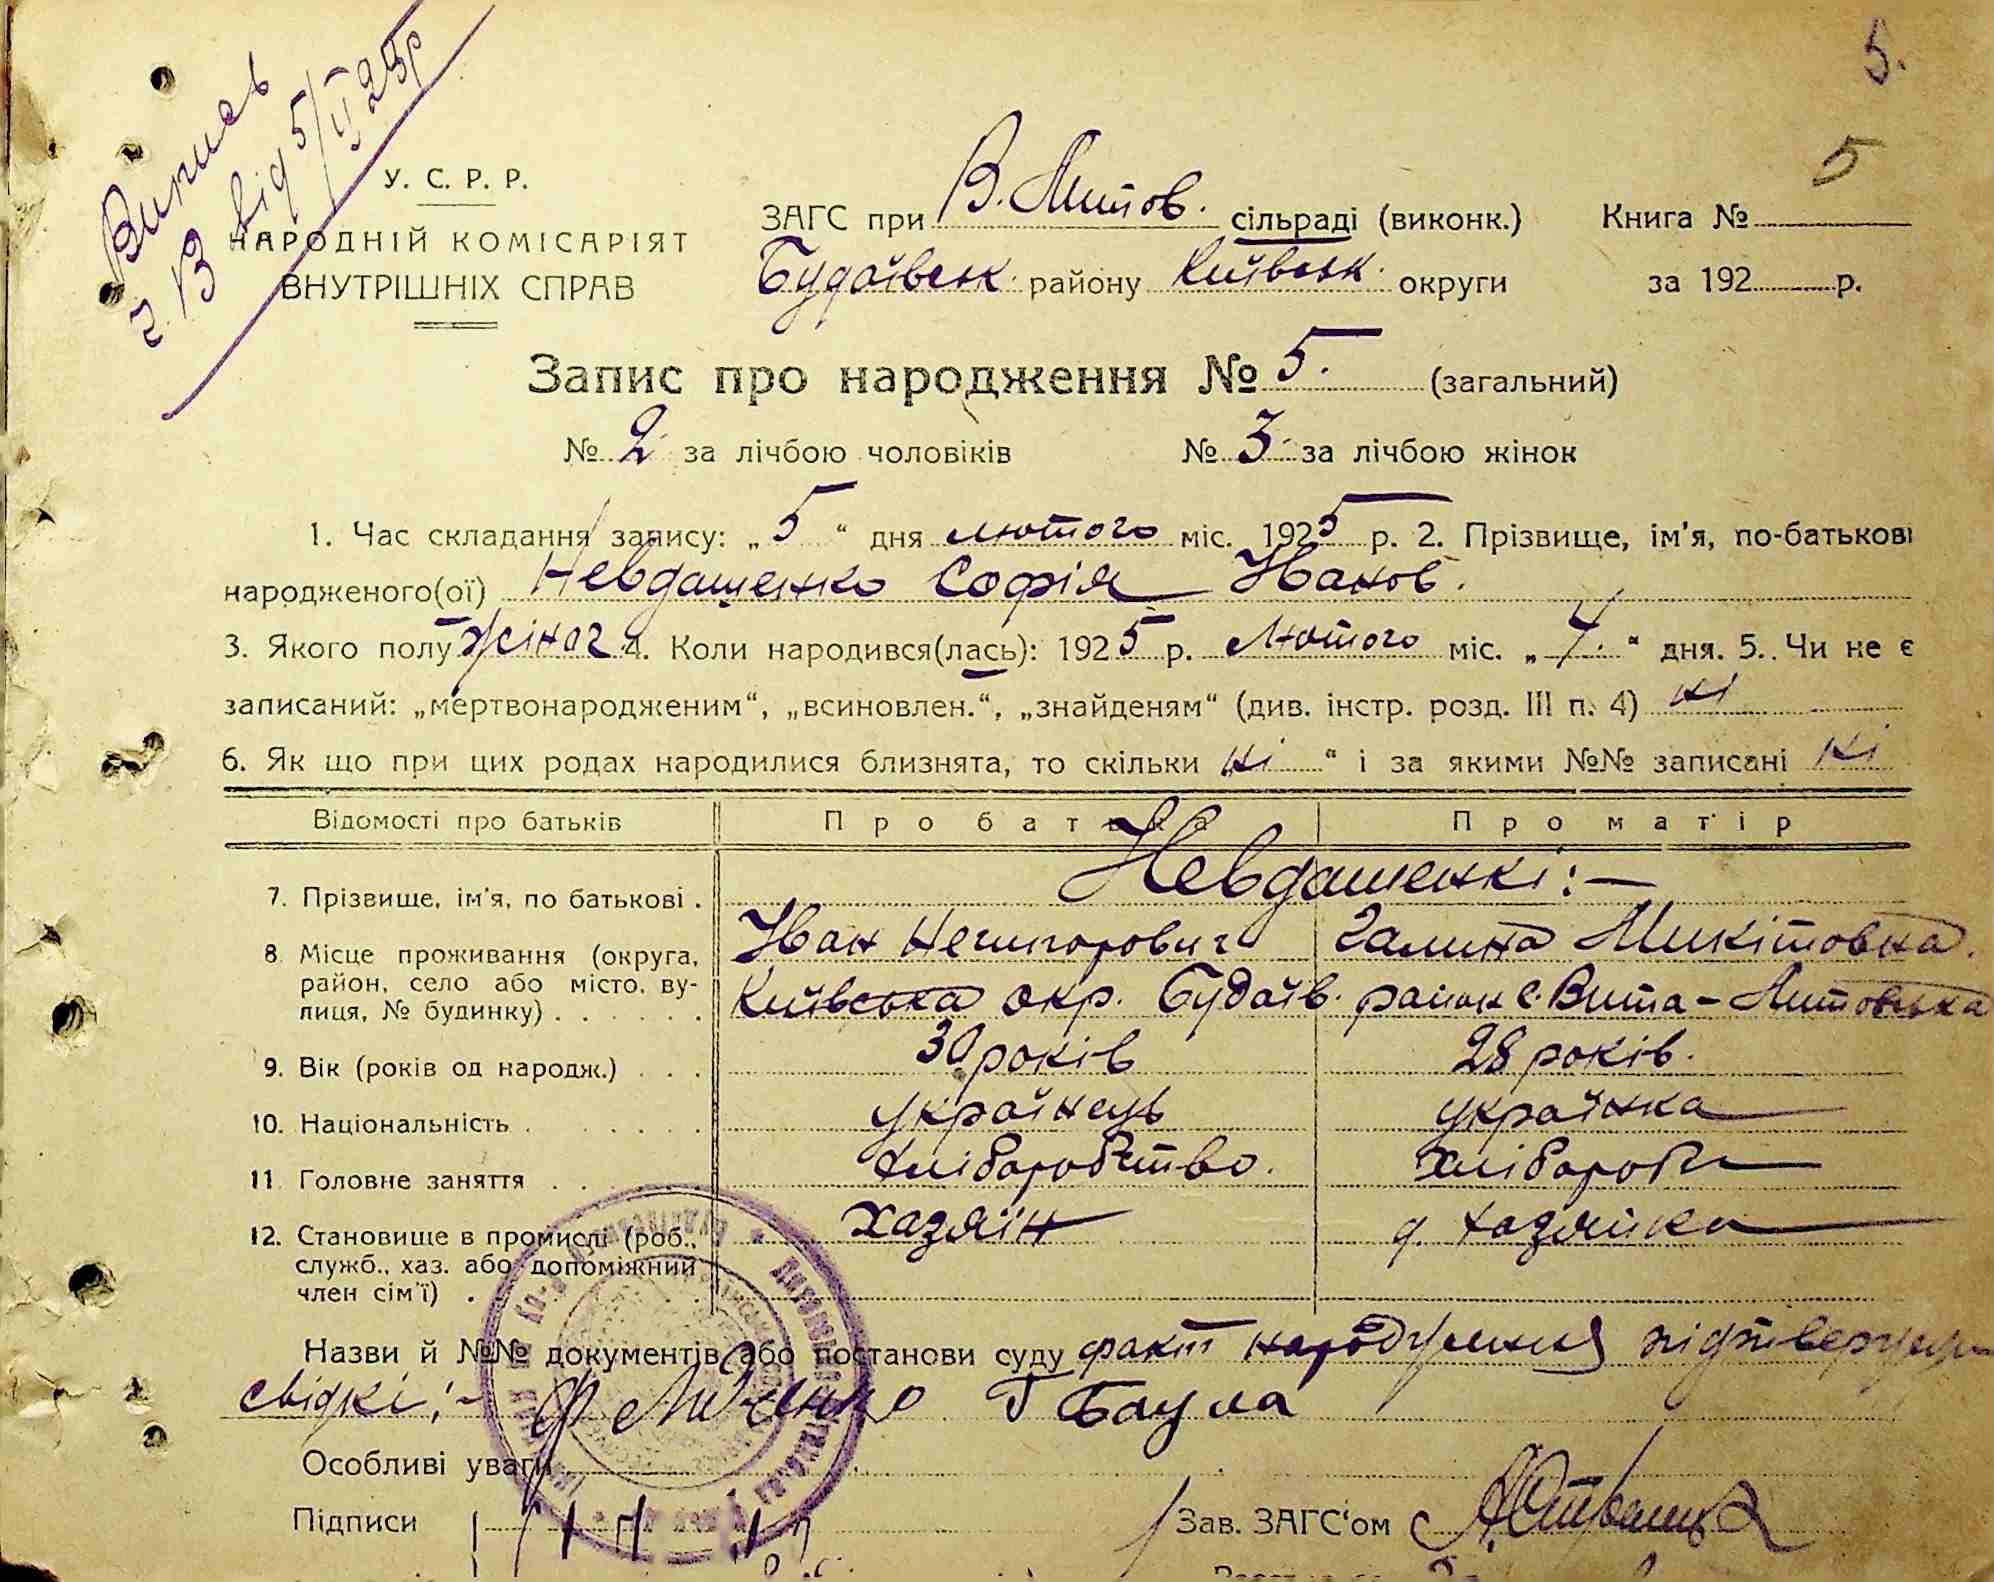 5.
5
Випись
ч. 13 від 5/II 25 р
У. С. Р. Р.
НАРОДНІЙ КОМІСАРІЯТ
ВНУТРІШНІХ СПРАВ
ЗАГС при В. Литов. сільраді (виконк.) Книга №
Будаївськ. району Київськ. округи за 192 р.
Запис про народження № 5. (загальний)
№ 2 за лічбою чоловіків № 3 за лічбою жінок
1. Час складання запису: „5“ дня лютого міс. 1925 р. 2. Прізвище, ім'я, по-батькові
народженого(ої) Невдашенко Софія Іванов.
3. Якого полу жіноч 4. Коли народився(лась): 1925 р. Лютого міс. „4.“ дня. 5. Чи не є
записаний: „мертвонародженим“, „всиновлен.“, „знайденям“ (див. інстр. розд. III п. 4) ні
6. Як що при цих родах народилися близнята, то скільки „ні“ і за якими №№ записані ні
Відомості про батьків Про батька Про матір
7. Прізвище, ім'я, по батькові . Невдашенкі:—
Іван Нечипорович Галина Микітовна.
8. Місце проживання (округа,
район, село або місто, ву-
лиця, № будинку) . . . . . . Київська окр. Будаїв. район с. Вита-Литовська
9. Вік (років од народж.) . . . 30 років 28 років.
10. Національність . . . . . . українець українка
11. Головне заняття . . . . хліборобство. хлібороб
12. Становище в промислі (роб., хазяїн д. хазяйка
служб., хаз. або допоміжний
член сім'ї) .
Назви й №№ документів або постанови суду факт народження
свідкі:- Г Баула
Особливі уваги
Підписи Зав. ЗАГС'ом